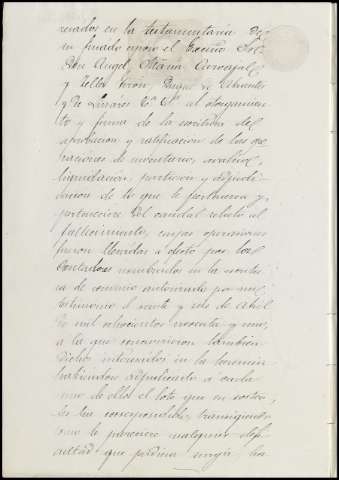 resados en la testamentaria de
su finado esposo el Excmo Sor
Don Angel Maria Carvajal
y Tellez Giron, Duque de Abrantes
y de Linares &ª &ª al otorgamien-
to y firma de la escritura de
aprobacion y ratificacion de las ope-
raciones de inventario, avaluo,
liquidacion, particion y adjudi-
cacion de lo que le pertenecia y
pertenecere del caudal relicto al
fallecimiento, cuyas operaciones
fueron llevadas á efecto por los
Contadores nombrados en la escritu-
ra de convenio autorizada por mi
testimonio el veinte y seis de Abril
de mil ochocientos noventa y uno,
a la que concurrieron tambien
dichos interesados en la herencia
habiendose adjudicado á cada
uno de ellos el lote que en sorteo
les ha correspondido, transigiendo
como le pareciere cualquier difi-
cultad que pudiera surgir ha